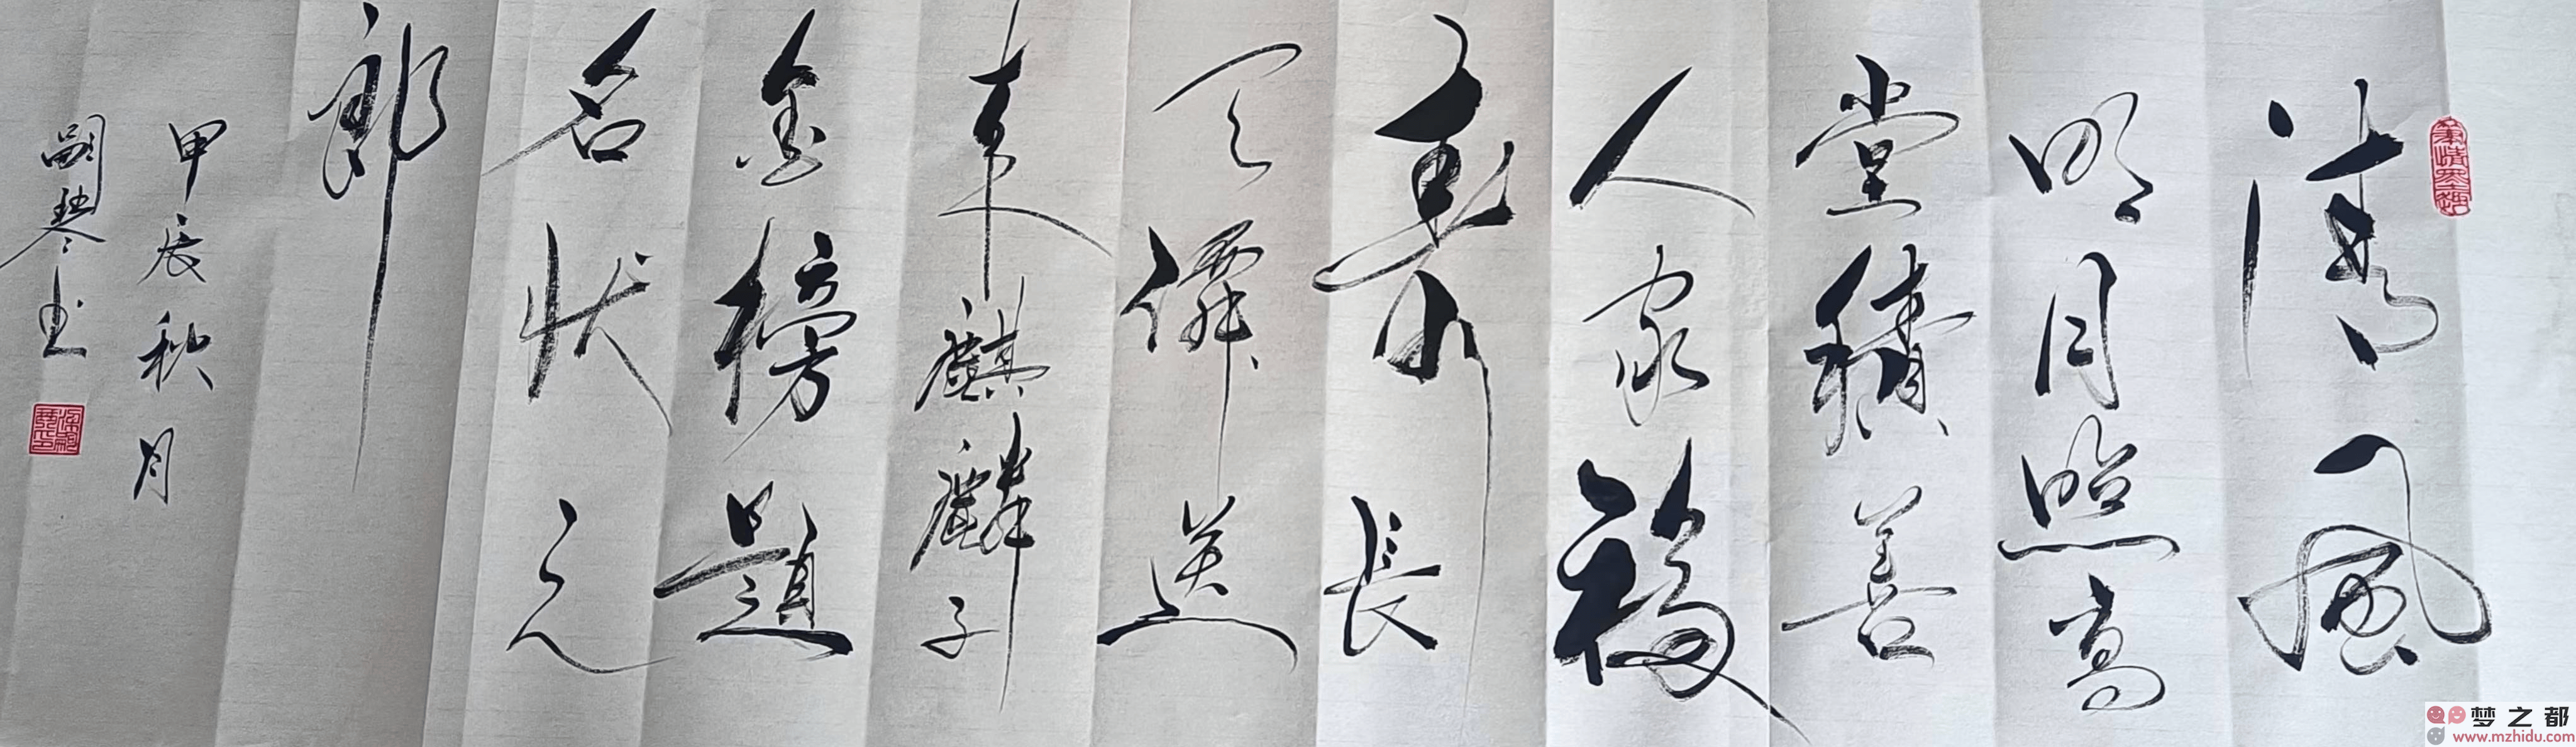 清风
明月照高
堂積善
人家福
壽長
天僊送
来麒麟子
金榜題
名状元
郎
甲辰秋月
嗣琴书
梦之都
www.mzhidu.com